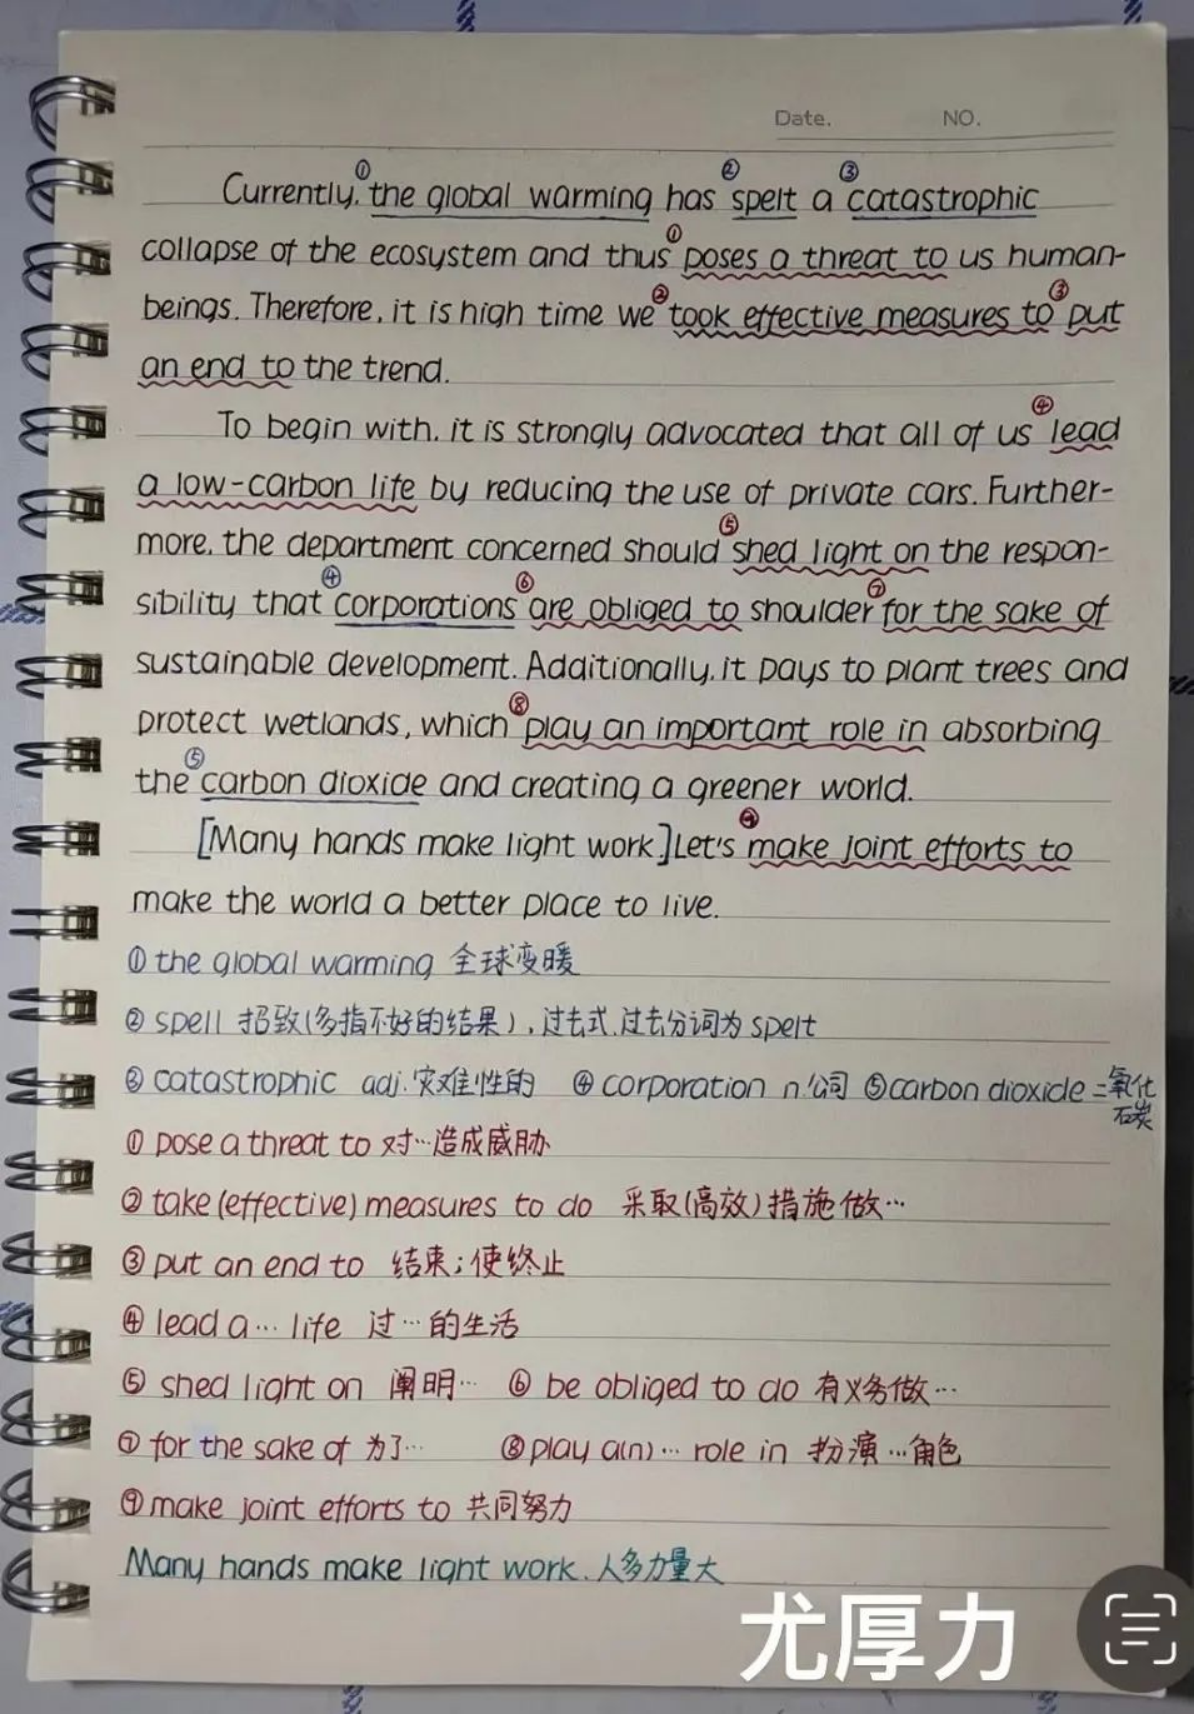 Date. NO.
Currently, ①the global warming has ②spelt a ③catastrophic
collapse of the ecosystem and thus ①poses a threat to us human-
beings. Therefore, it is high time we ②took effective measures to ③put
an end to the trend.
To begin with, it is strongly advocated that all of us ④lead
a low-carbon life by reducing the use of private cars. Further-
more, the department concerned should ⑤shed light on the respon-
sibility that ④corporations ⑥are obliged to shoulder ⑦for the sake of
sustainable development. Additionally, it pays to plant trees and
protect wetlands, which ⑧play an important role in absorbing
the ⑤carbon dioxide and creating a greener world.
[Many hands make light work.] Let's ⑨make joint efforts to
make the world a better place to live.
① the global warming 全球变暖
② spell 招致(多指不好的结果),过去式.过去分词为 spelt
③ catastrophic adj.灾难性的 ④ corporation n.公司 ⑤carbon dioxide 二氧化
碳
① pose a threat to 对…造成威胁
② take (effective) measures to do 采取(高效)措施做…
③ put an end to 结束;使终止
④ lead a … life 过…的生活
⑤ shed light on 阐明… ⑥ be obliged to do 有义务做…
⑦ for the sake of 为了… ⑧play a(n) … role in 扮演…角色
⑨ make joint efforts to 共同努力
Many hands make light work. 人多力量大
尤厚力